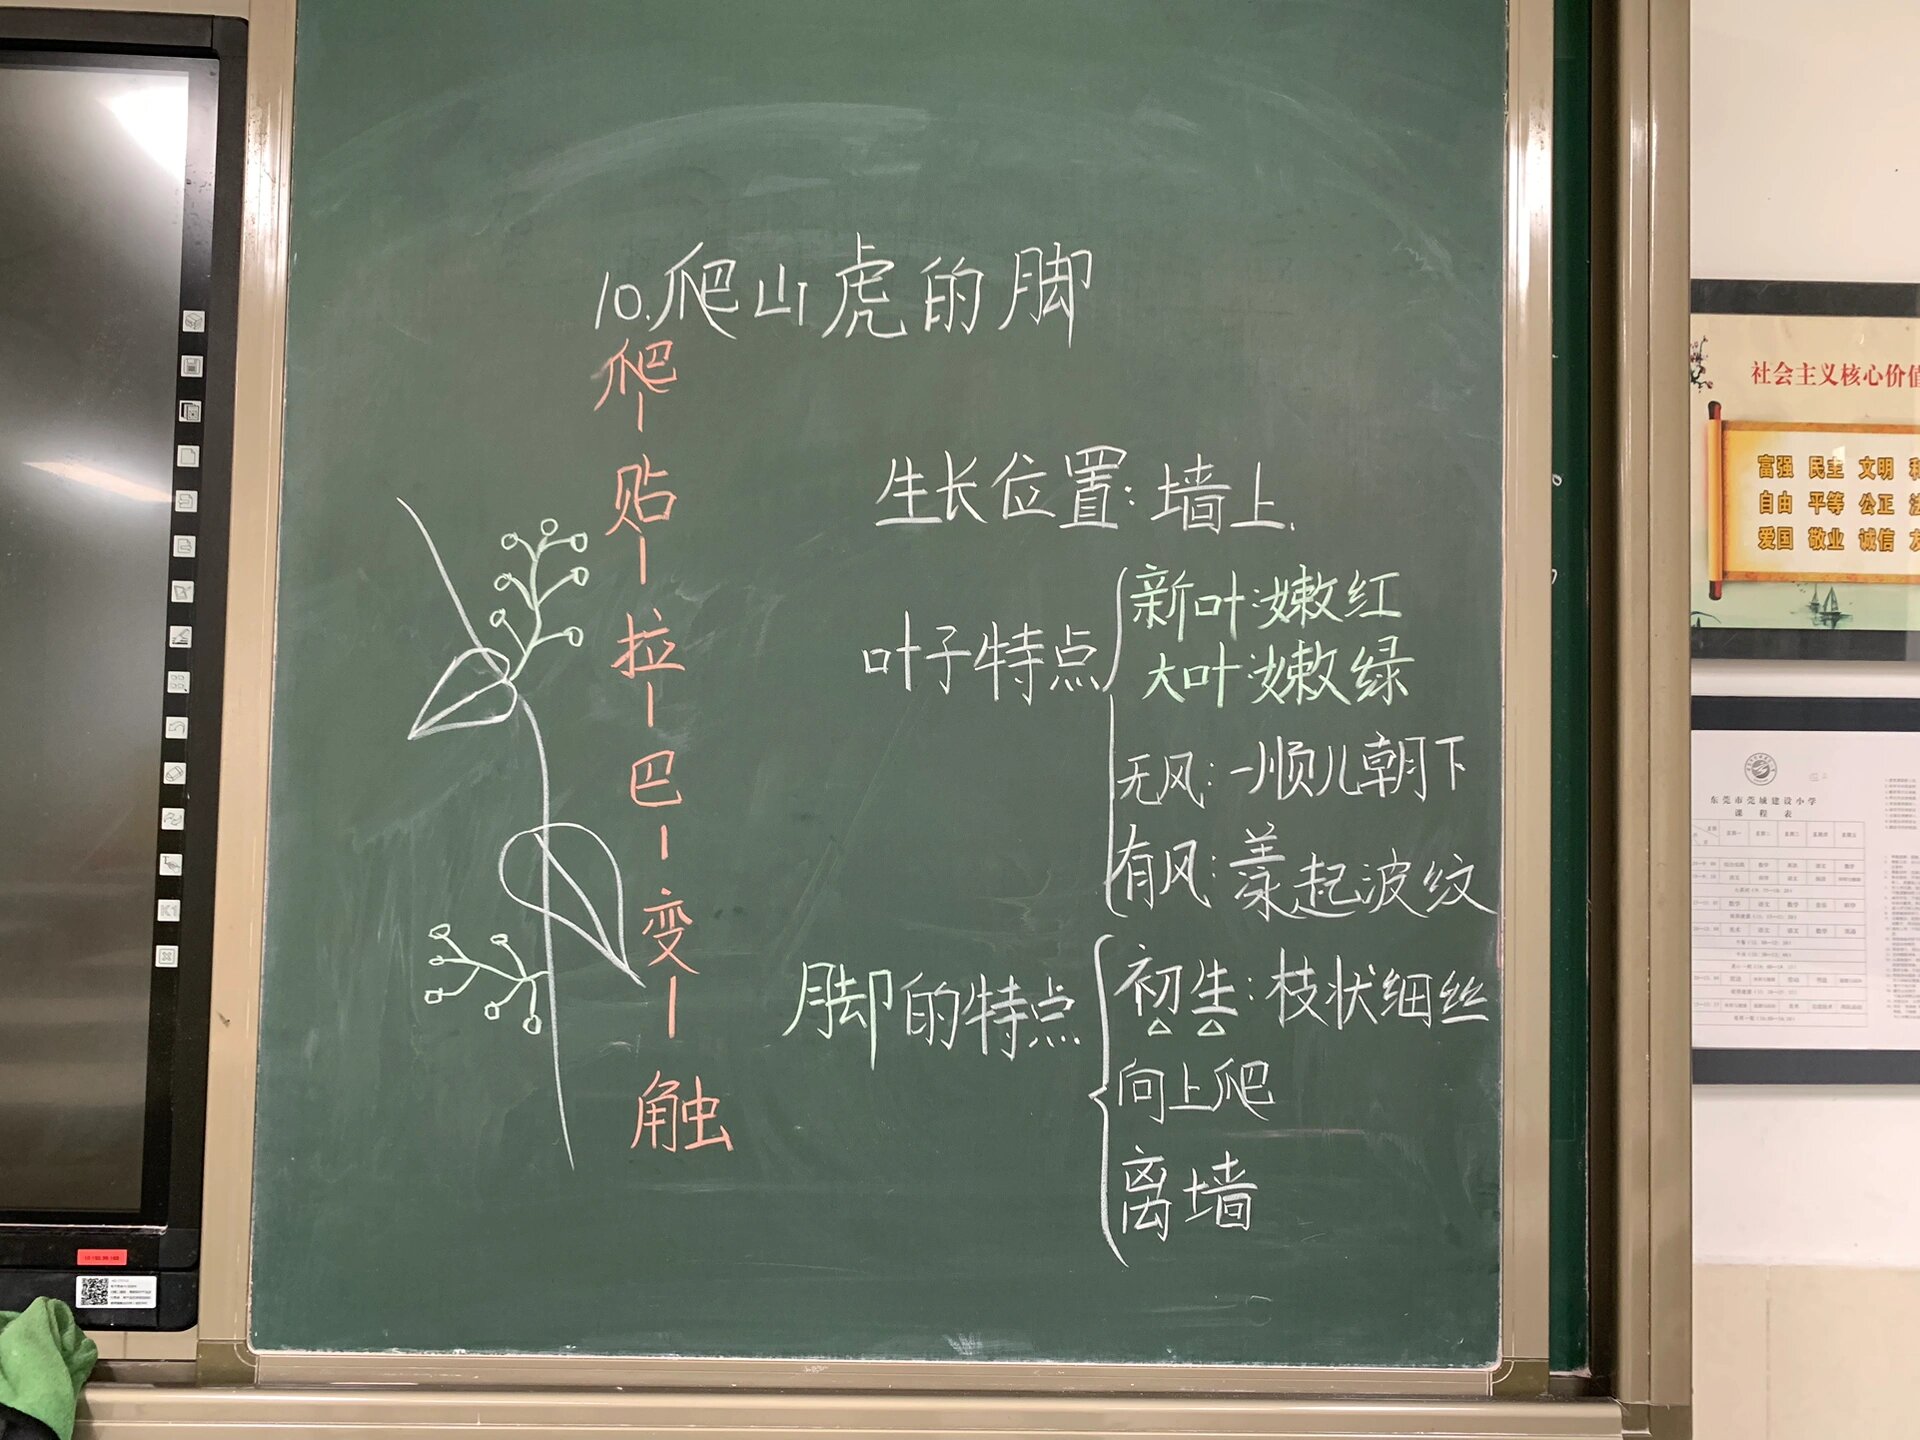 10.爬山虎的脚
爬
贴
拉
巴
变
触
生长位置:墙上.
叶子特点
新叶:嫩红
大叶:嫩绿
无风:一顺儿朝下
有风:漾起波纹
脚的特点
初生:枝状细丝
向上爬
离墙
社会主义核心价值
富强 民主 文明
自由 平等 公正
爱国 敬业 诚信
东莞市莞城建设小学
课程表